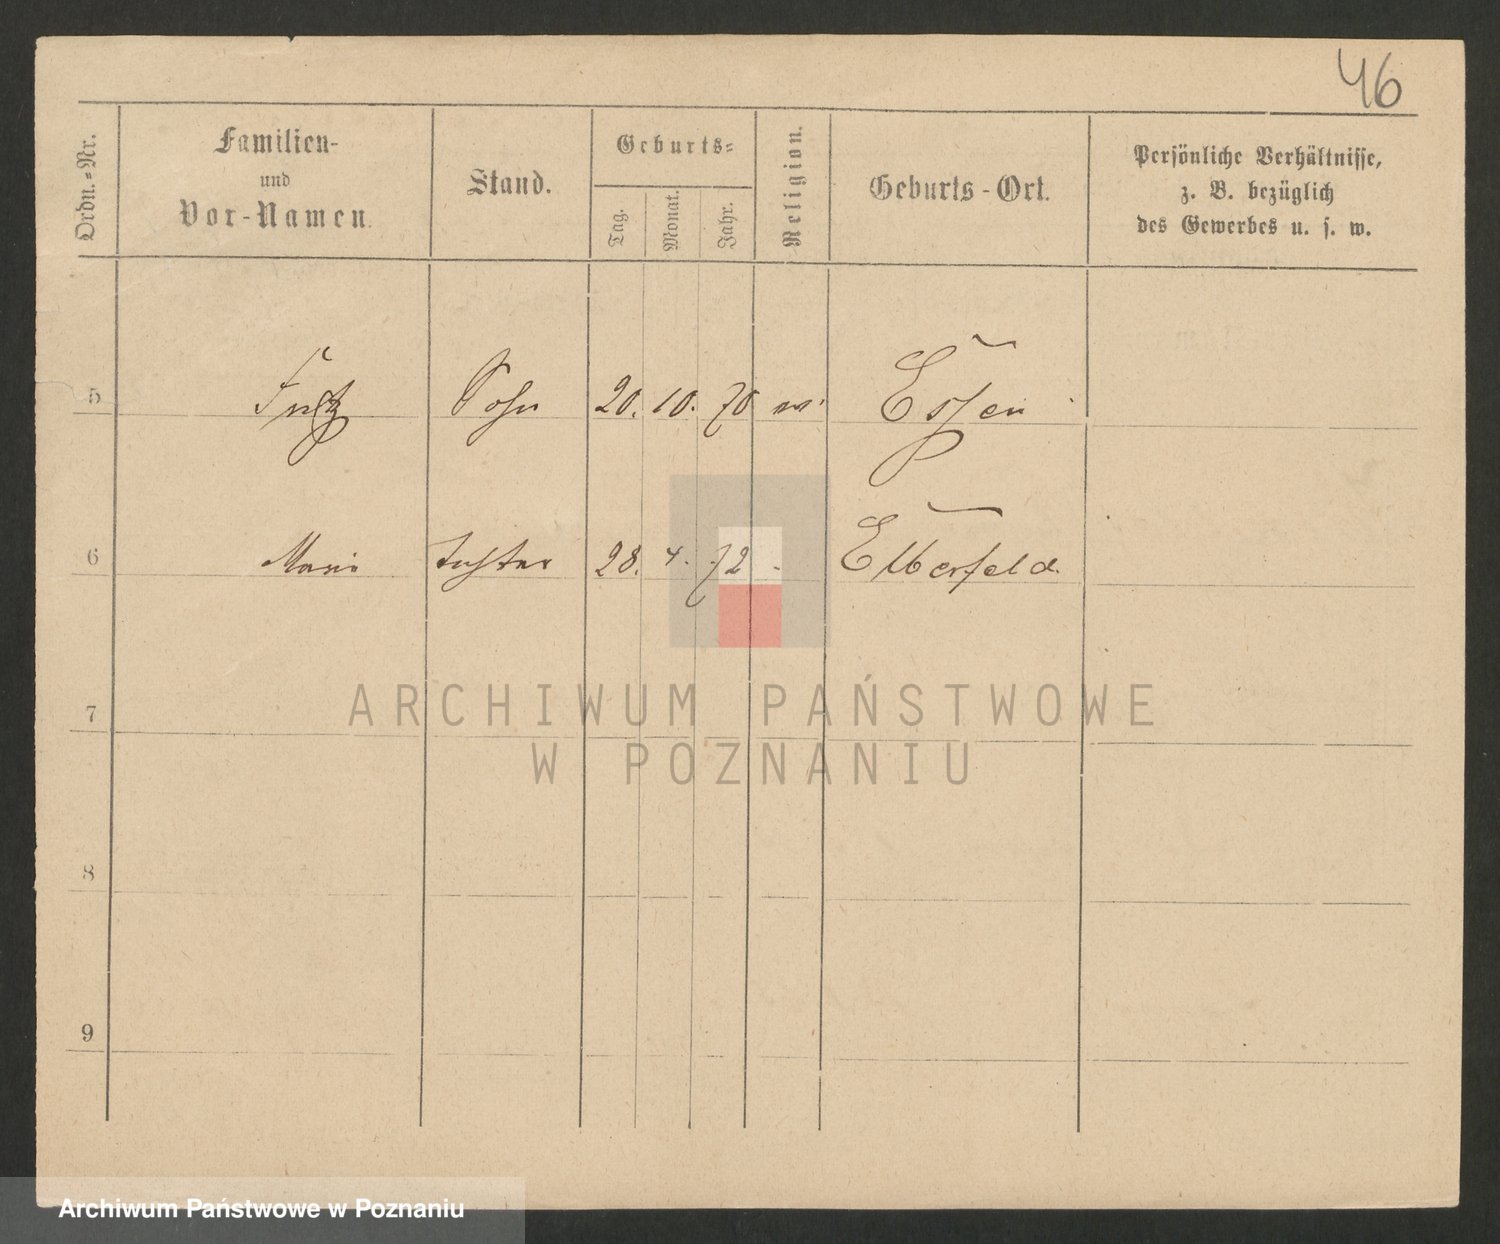 46
Ordn.-Nr.
Familien-
und
Vor-Namen.
Stand.
Geburts-
Tag.
Monat.
Jahr.
Religion.
Geburts-Ort.
Persönliche Verhältnisse,
z. B. bezüglich
des Gewerbes u. s. w.
5 Fritz Sohn 20. 10. 70 Essen
6 Marie tochter 28. 4. 72 Elberfeld.
7
ARCHIWUM PAŃSTWOWE
W POZNANIU
8
9
Archiwum Państwowe w Poznaniu